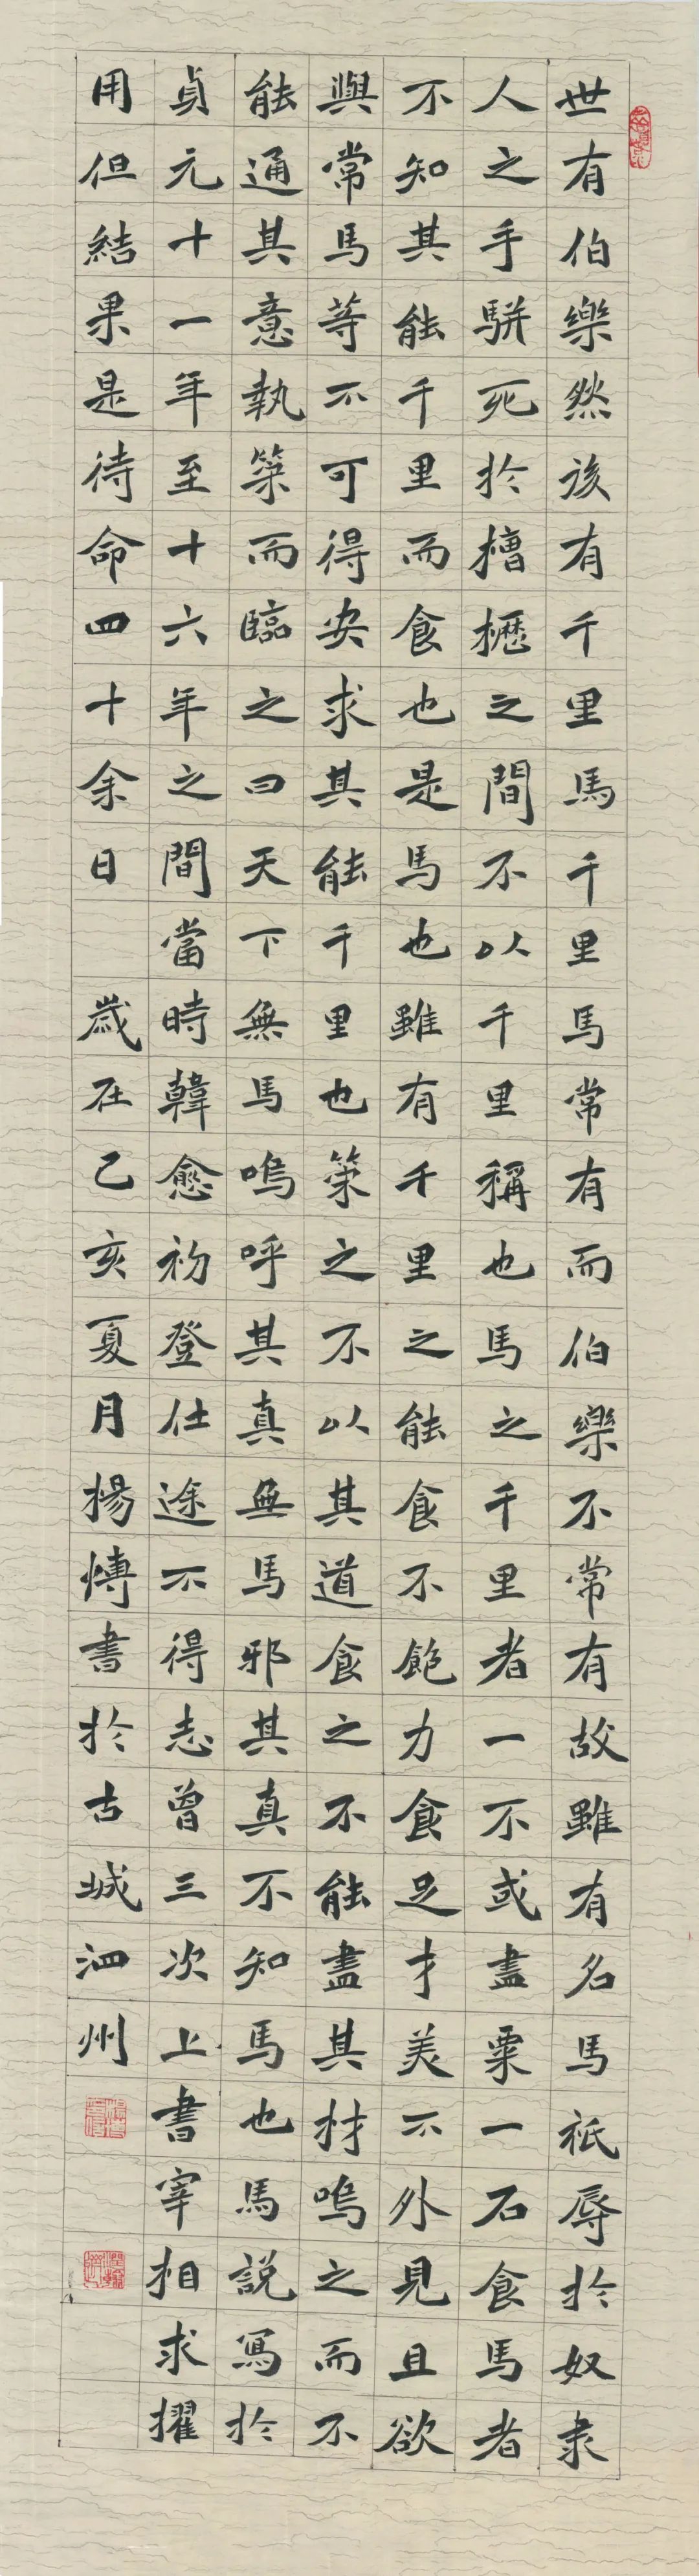 世有伯樂然後有千里馬千里馬常有而伯樂不常有故雖有名馬祇辱於奴隶
人之手駢死於槽櫪之間不以千里稱也馬之千里者一不或盡粟一石食馬者
不知其能千里而食也是馬也雖有千里之能食不飽力食足才美不外見且欲
與常馬等不可得安求其能千里也策之不以其道食之不能盡其材嗚之而不
能通其意執策而臨之曰天下無馬嗚呼其真無馬邪其真不知馬也馬説寫於
貞元十一年至十六年之間當時韓愈初登仕途不得志曾三次上書宰相求擢
用但結果是待命四十余日 歲在乙亥夏月揚慱書於古城泗州